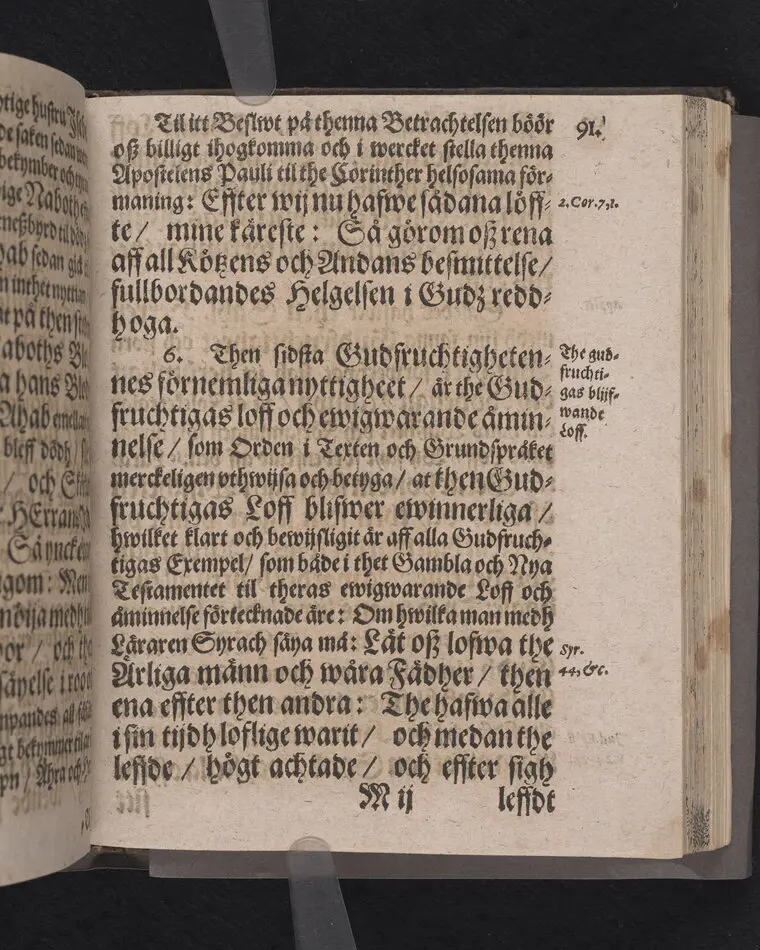 tige hustru
de saken sedan
bekymber och
ige Naboth
ab sedan
n inthet nyttian
t på then
aboths
a hans
Ahab
bleff dödh /
/ och
HErran
Så
gom: Men
or / och
säyelse i
wandes
gt bekymmer
pn / Ähra och
91.
Til itt Beslwt på thenna Betrachtelsen böör
oß billigt ihogkomma och i wercket stella thenna
Apostelens Pauli til the Corinther helsosama för-
maning: Effter wij nu hafwe sådana löff-
te / mine käreste: Så görom oß rena
aff all Kötzens och Andans besmittelse /
fullbordandes Helgelsen i Gudz redd-
hoga.
2. Cor. 7, 1.
6. Then sidsta Gudfruchtigheten-
nes förnemliga nyttigheet / är the Gud-
fruchtigas loff och ewigwarande åmin-
nelse / som Orden i Texten och Grundspråket
merckeligen vthwijsa och betyga / at then Gud-
fruchtigas Loff blifwer ewinnerliga /
hwilket klart och bewijsligit är aff alla Gudfruch-
tigas Exempel / som både i thet Gambla och Nya
Testamentet til theras ewigwarande Loff och
åminnelse förtecknade äre: Om hwilka man medh
Läraren Syrach säya må: Låt oß lofwa the
Ärliga männ och wåra Fädher / then
ena effter then andra: The hafwa alle
i sin tijdh loflige warit / och medan the
leffde / högt achtade / och effter sigh
The gud-
fruchti-
gas blijf-
wande
Loff.
Syr.
44, &c.
M ij
leffdt